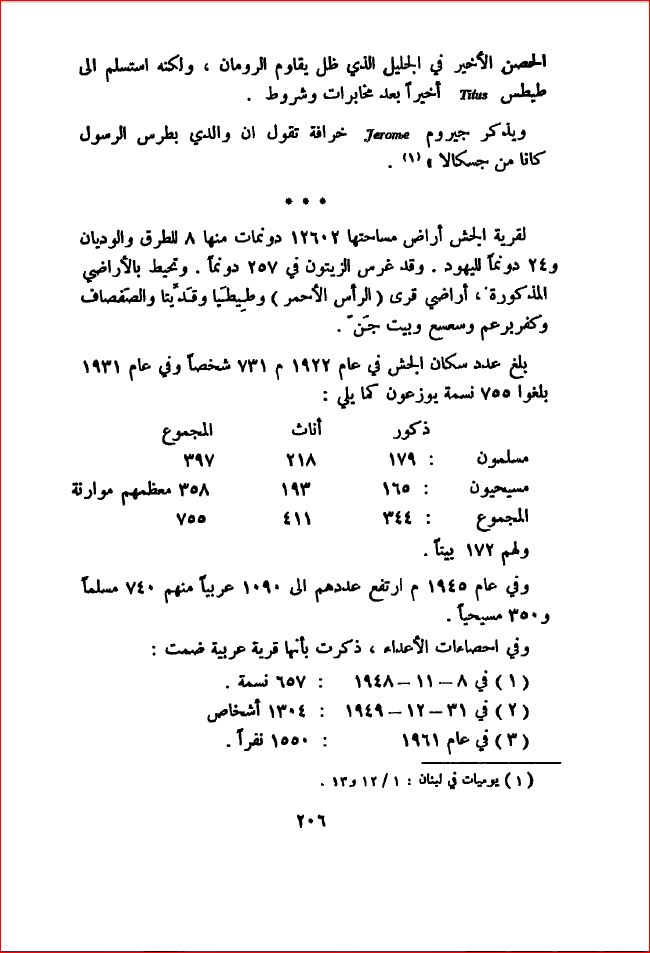 الحصن الأخير في الجليل الذي ظل يقاوم الرومان ، ولكنه استسلم الى
طيطس Titus أخيراً بعد مخابرات وشروط .
ويذكر جيروم Jerome خرافة تقول ان والدي بطرس الرسول
كانا من جسكالا » (١) .
* * *
لقرية الجش أراض مساحتها ١٢٦٠٢ دونمات منها ٨ للطرق والوديان
و٢٤ دونماً لليهود . وقد غرس الزيتون في ٢٥٧ دونماً . وتحيط بالأراضي
المذكورة ، أراضي قرى ( الرأس الأحمر ) وطيطبا وقدّيتا والصفصاف
وكفربرعم وسعسع وبيت جنّ .
بلغ عدد سكان الجش في عام ١٩٢٢ م ٧٣١ شخصاً وفي عام ١٩٣١
بلغوا ٧٥٥ نسمة يوزعون كما يلي :
ذكور أناث المجموع
مسلمون : ١٧٩ ٢١٨ ٣٩٧
مسيحيون : ١٦٥ ١٩٣ ٣٥٨ معظمهم موارنة
المجموع : ٣٤٤ ٤١١ ٧٥٥
ولهم ١٧٢ بيتاً .
وفي عام ١٩٤٥ م ارتفع عددهم الى ١٠٩٠ عربياً منهم ٧٤٠ مسلماً
و٣٥٠ مسيحياً .
وفي احصاءات الأعداء ، ذكرت بأنها قرية عربية ضمت :
( ١ ) في ٨ – ١١ – ١٩٤٨ : ٦٥٧ نسمة .
( ٢ ) في ٣١ – ١٢ – ١٩٤٩ : ١٣٠٤ أشخاص
( ٣ ) في عام ١٩٦١ : ١٥٥٠ نفراً .
( ١ ) يوميات في لبنان : ١ / ١٢ و١٣ .
٢٠٦